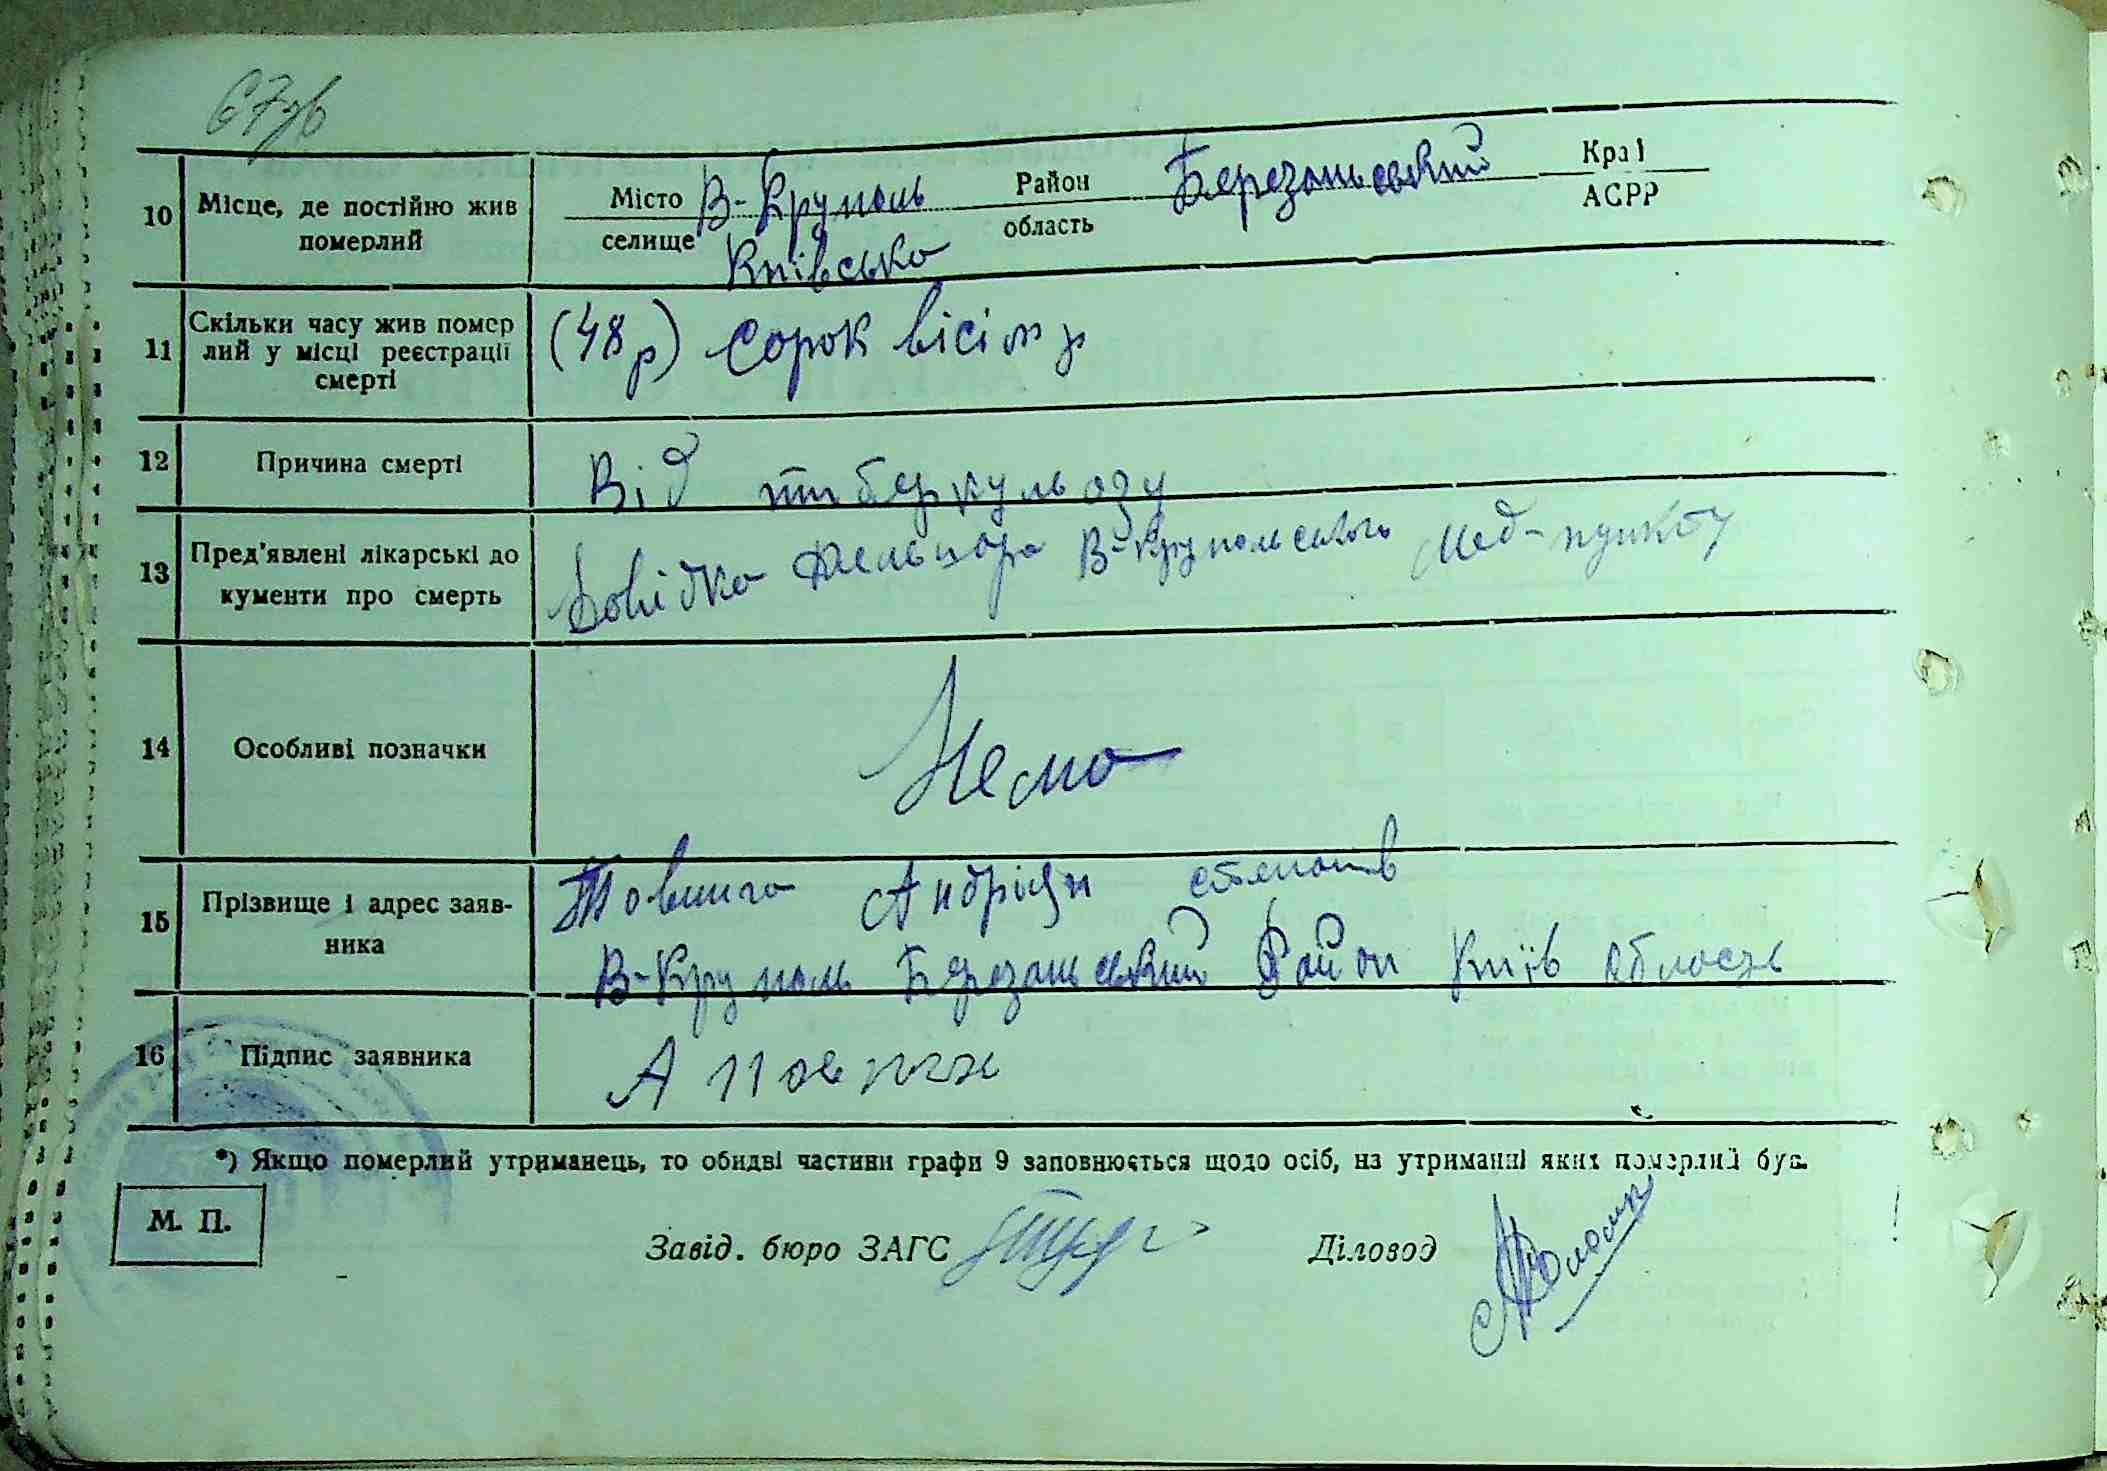 67зв
10 Місце, де постійно жив Місто В-Круполь Район Березаньський Краї
померлий селище область АСРР
Київсько
11 Скільки часу жив помер (48 р) сорок вісім р
лий у місці реєстрації
смерті
12 Причина смерті Від тиберкульозу
13 Пред'явлені лікарські до Довідка В-Крупольського Мед-пункту
кументи про смерть
14 Особливі позначки Нема
15 Прізвище і адрес заяв- Товпига Андріян
ника В-Круполь Березанський Район Київ область
16 Підпис заявника А
*) Якщо померлий утриманець, то обидві частини графи 9 заповнюється щодо осіб, на утриманні яких померлий був.
М. П.
Завід. бюро ЗАГС Діловод